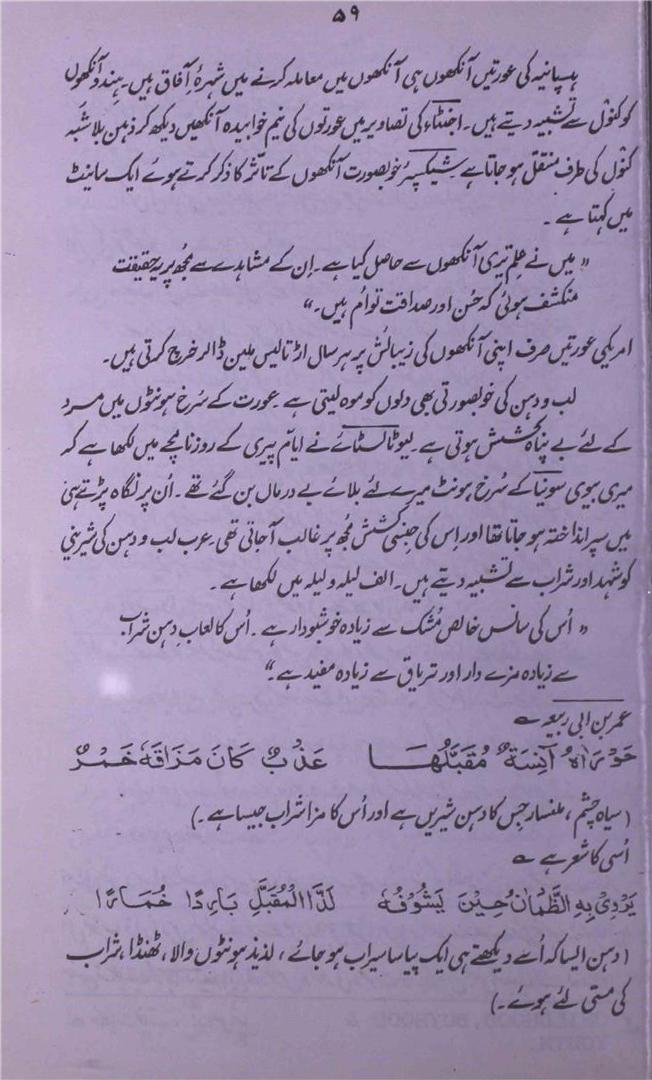 ۵۹
ہسپانیہ کی عورتیں آنکھوں ہی آنکھوں میں معاملہ کرنے میں شہرۂ آفاق ہیں۔ ہند آنکھوں
کو کنول سے تشبیہ دیتے ہیں۔ اجنٹاء کی تصاویر میں عورتوں کی نیم خوابیدہ آنکھیں دیکھ کر ذہن بلاشبہ
کنول کی طرف منتقل ہو جاتا ہے شیکسپیئر خوبصورت آنکھوں کے تاثر کا ذکر کرتے ہوئے ایک سانیٹ
میں کہتا ہے۔
"میں نے علم تیری آنکھوں سے حاصل کیا ہے۔ اِن کے مشاہدے سے مجھ پر یہ حقیقت
منکشف ہوئی کہ حُسن اور صداقت توام ہیں۔"
امریکی عورتیں صرف اپنی آنکھوں کی زیبائش پر ہر سال اڑتالیس ملین ڈالر خرچ کرتی ہیں۔
لب و دہن کی خوبصورتی بھی دلوں کو موہ لیتی ہے۔ عورت کے سُرخ ہونٹوں میں مرد
کے لئے بے پناہ کشش ہوتی ہے۔ لیوٹالسٹائے نے ایامِ پیری کے روزنامچے میں لکھا ہے کہ
میری بیوی سونیا کے سُرخ ہونٹ میرے لئے بلائے بے درماں بن گئے تھے۔ اُن پر نگاہ پڑتے ہی
میں سپر انداختہ ہو جاتا تھا اور اس کی جنسی کشش مجھ پر غالب آ جاتی تھی۔ عرب لب و دہن کی شیرینی
کو شہد اور شراب سے تشبیہ دیتے ہیں۔ الف لیلہ و لیلہ میں لکھا ہے۔
"اُس کی سانس خالص مُشک سے زیادہ خوشبودار ہے۔ اُس کا لعابِ دہن شراب
سے زیادہ مزے دار اور تریاق سے زیادہ مفید ہے۔"
عمر بن ابی ربیعہ ؎
حَوْرَاہُ آنِسَةٌ مُقَبَّلُهَا عَذْبٌ كَانَ مَزَاقَهٗ خَمْرٌ
(سیاہ چشم، ملنسار جس کا دہن شیریں ہے اور اُس کا مزا شراب جیسا ہے۔)
اُسی کا شعر ہے ؎
يَرْدِیْ بِهِ الظَّمْاٰنُ حِيْنَ يَشُوْفُهٗ لَذَّا الْمُقَبَّلِ بَارِدًا خُمَارًا
(دہن ایسا کہ اُسے دیکھتے ہی ایک پیاسا سیراب ہو جائے، لذیذ ہونٹوں والا، ٹھنڈا، شراب
کی مستی لئے ہوئے۔)